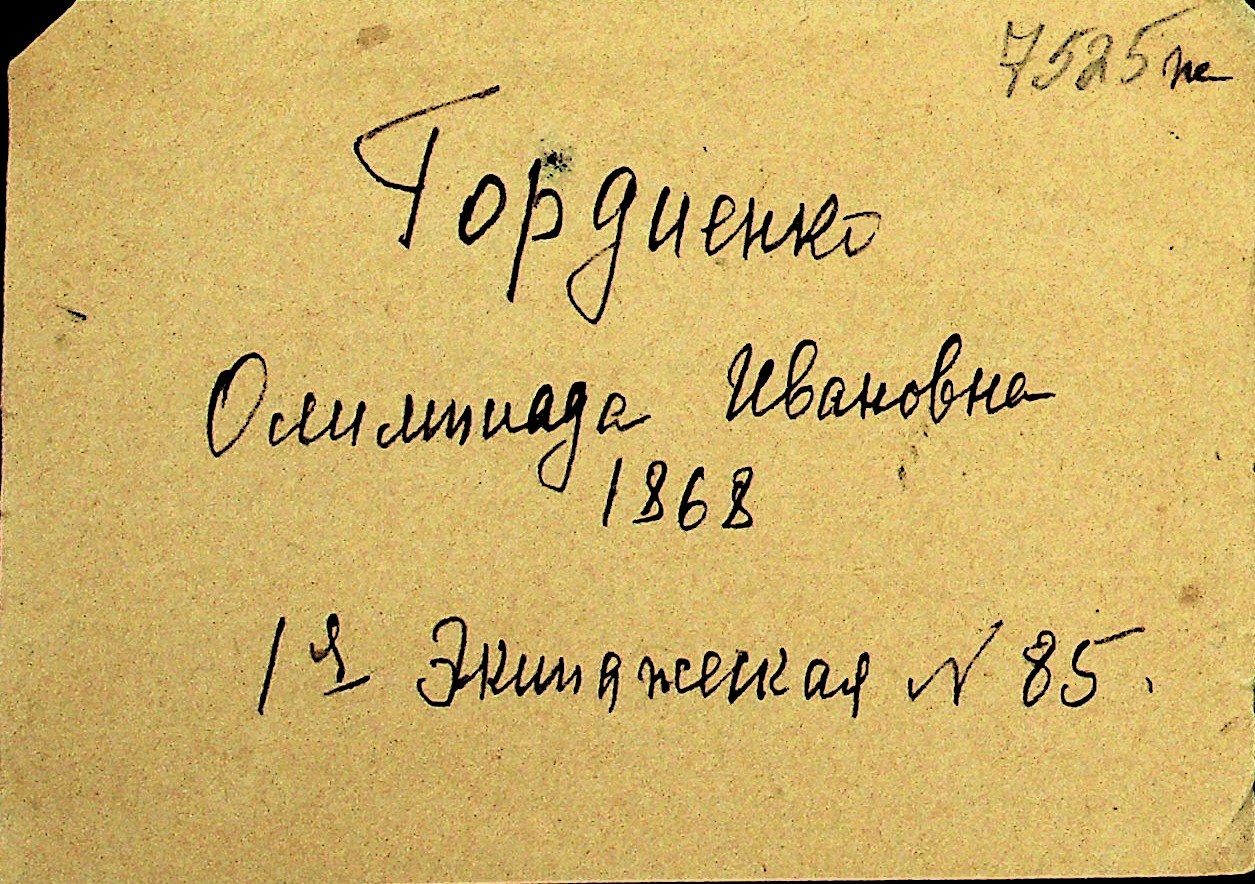 7525
Гордиенко
Олимпиада Ивановна
1868
1я Экипажеская N 85.